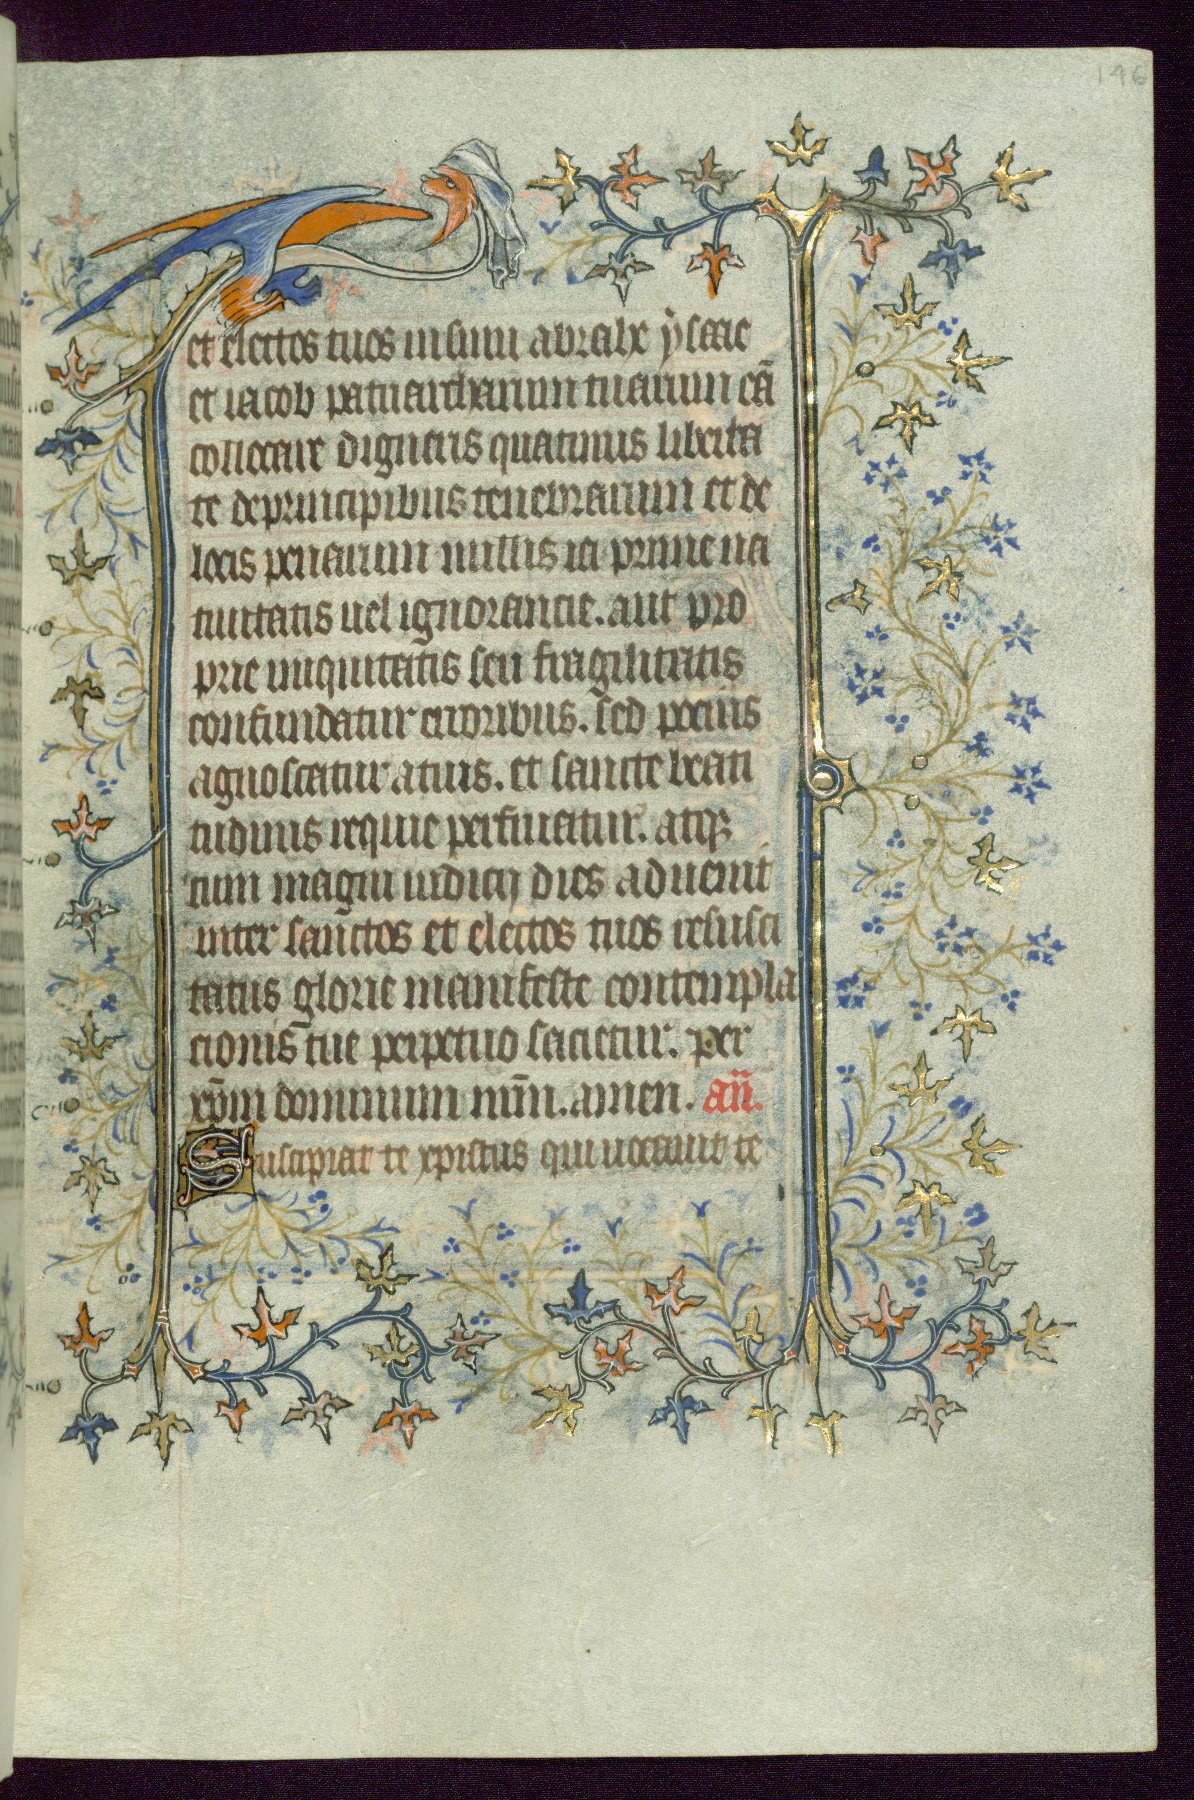 146
et electos tuos in sinu abrahe ẏsaac
et iacob patriarcharum tuarum eā
collocare digneris quatinus liberta
te de principibus tenebrarum et de
locis penarum nullis ia prime na
tiuitatis uel ignorancie. aut pro
prie iniquitatis seu fragilitatis
confundatur erroribus. sed pocius
agnoscatur a tuis. et sancte beati
tudinis requie perfruatur. atqȝ
cum magni iudicij dies aduenit
inter sanctos et electos tuos resusci
tatus glorie manifeste contempla
cionis tue perpetuo sacietur. per
xp̄m dominum nr̄m. amen. an̄.
Suscipiat te xpistus qui uocauit te